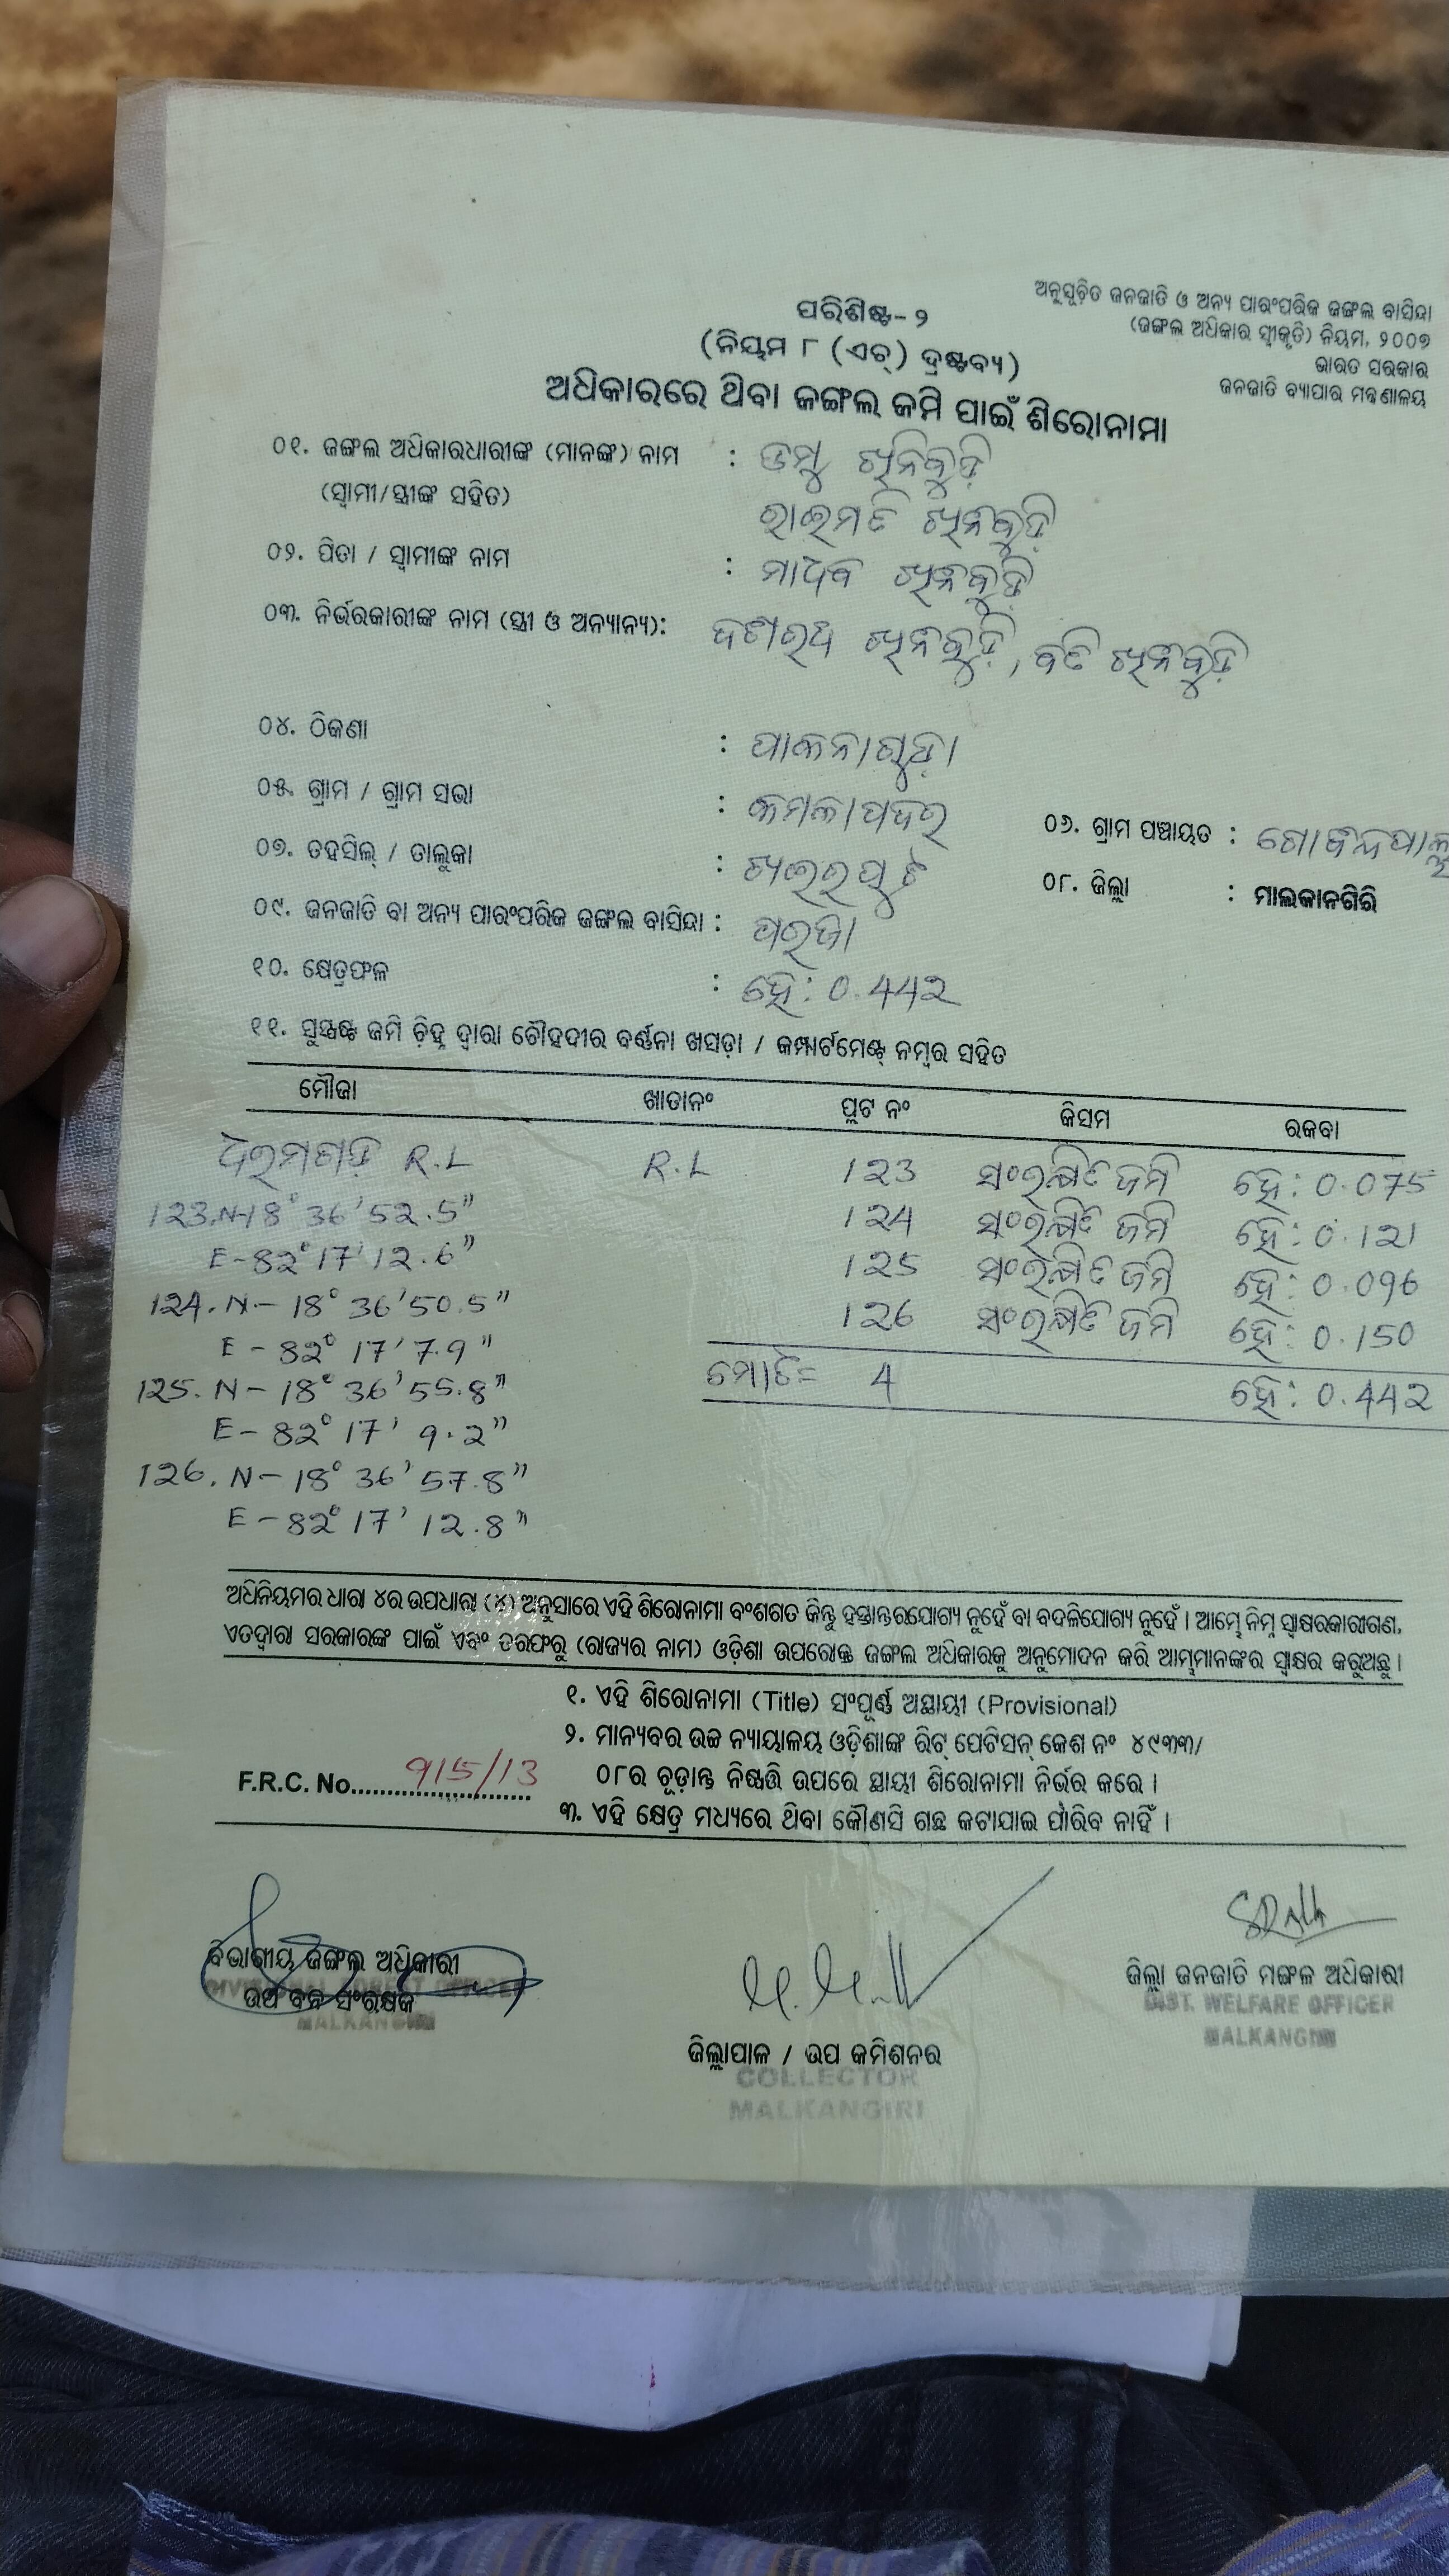 ଅନୁସୂଚିତ ଜନଜାତି ଓ ଅନ୍ୟ ପାରଂପରିକ ଜଙ୍ଗଲ ବାସିନ୍ଦା
(ଜଙ୍ଗଲ ଅଧିକାର ସ୍ୱୀକୃତି) ନିୟମ, ୨୦୦୭
ଭାରତ ସରକାର
ଜନଜାତି ବ୍ୟାପାର ମନ୍ତ୍ରଣାଳୟ
ପରିଶିଷ୍ଟ-୨
(ନିୟମ ୮ (ଏଚ୍) ଦ୍ରଷ୍ଟବ୍ୟ)
ଅଧିକାରରେ ଥିବା ଜଙ୍ଗଲ ଜମି ପାଇଁ ଶିରୋନାମା
୦୧. ଜଙ୍ଗଲ ଅଧିକାରଧାରୀଙ୍କ (ମାନଙ୍କ) ନାମ :
(ସ୍ୱାମୀ/ସ୍ତ୍ରୀଙ୍କ ସହିତ) ରାଇମତି
୦୨. ପିତା / ସ୍ୱାମୀଙ୍କ ନାମ : ମାଧବ
୦୩. ନିର୍ଭରକାରୀଙ୍କ ନାମ (ସ୍ତ୍ରୀ ଓ ଅନ୍ୟାନ୍ୟ): ଦଶରଥ
୦୪. ଠିକଣା : ପାକନାଗୁଡ଼ା
୦୫. ଗ୍ରାମ / ଗ୍ରାମ ସଭା : କମଳାପଦର
୦୬. ଗ୍ରାମ ପଞ୍ଚାୟତ :
୦୭. ତହସିଲ୍ / ତାଲୁକା : ଖଇରପୁଟ
୦୮. ଜିଲ୍ଲା : ମାଲକାନଗିରି
୦୯. ଜନଜାତି ବା ଅନ୍ୟ ପାରଂପରିକ ଜଙ୍ଗଲ ବାସିନ୍ଦା : ପରଜା
୧୦. କ୍ଷେତ୍ରଫଳ : ହେ: 0.442
୧୧. ସୁସ୍ପଷ୍ଟ ଜମି ଚିହ୍ନ ଦ୍ୱାରା ଚୌହଦୀର ବର୍ଣ୍ଣନା ଖସଡ଼ା / କମ୍ପାର୍ଟମେଣ୍ଟ୍ ନମ୍ବର ସହିତ
ମୌଜା ଖାତାନଂ ପ୍ଲଟ ନଂ କିସମ ରକବା
ଧରମଗଡ଼ R.L R.L 123 ସଂରକ୍ଷିତ ଜମି ହେ: 0.075
123.N-18° 36' 52.5" 124 ସଂରକ୍ଷିତ ଜମି ହେ: 0.121
E-82° 17' 12.6" 125 ସଂରକ୍ଷିତ ଜମି ହେ: 0.096
124. N- 18° 36' 50.5" 126 ସଂରକ୍ଷିତ ଜମି ହେ: 0.150
E - 82° 17' 7.9"
ମୋଟ= 4 ହେ: 0.442
125. N- 18° 36' 55.8"
E- 82° 17' 9.2"
126. N- 18° 36' 57.8"
E- 82° 17' 12.8"
ଅଧିନିୟମର ଧାରା ୪ର ଉପଧାରା (୪) ଅନୁସାରେ ଏହି ଶିରୋନାମା ବଂଶଗତ କିନ୍ତୁ ହସ୍ତାନ୍ତରଯୋଗ୍ୟ ନୁହେଁ ବା ବଦଳିଯୋଗ୍ୟ ନୁହେଁ । ଆମ୍ଭେ ନିମ୍ନ ସ୍ୱାକ୍ଷରକାରୀଗଣ,
ଏତଦ୍ୱାରା ସରକାରଙ୍କ ପାଇଁ ଏବଂ ତରଫରୁ (ରାଜ୍ୟର ନାମ) ଓଡ଼ିଶା ଉପରୋକ୍ତ ଜଙ୍ଗଲ ଅଧିକାରକୁ ଅନୁମୋଦନ କରି ଆମ୍ଭମାନଙ୍କର ସ୍ୱାକ୍ଷର କରୁଅଛୁ ।
୧. ଏହି ଶିରୋନାମା (Title) ସଂପୂର୍ଣ୍ଣ ଅସ୍ଥାୟୀ (Provisional)
୨. ମାନ୍ୟବର ଉଚ୍ଚ ନ୍ୟାୟାଳୟ ଓଡ଼ିଶାଙ୍କ ରିଟ୍ ପେଟିସନ୍ କେଶ ନଂ ୪୯୩୩/
୦୮ର ଚୂଡ଼ାନ୍ତ ନିଷ୍ପତ୍ତି ଉପରେ ସ୍ଥାୟୀ ଶିରୋନାମା ନିର୍ଭର କରେ ।
F.R.C. No. 915/13
୩. ଏହି କ୍ଷେତ୍ର ମଧ୍ୟରେ ଥିବା କୌଣସି ଗଛ କଟାଯାଇ ପାରିବ ନାହିଁ ।
ବିଭାଗୀୟ ଜଙ୍ଗଲ ଅଧିକାରୀ
DIVISIONAL FOREST OFFICER
ଉପ ବନ ସଂରକ୍ଷକ
MALKANGIRI
ଜିଲ୍ଲାପାଳ / ଉପ କମିଶନର
COLLECTOR
MALKANGIRI
ଜିଲ୍ଲା ଜନଜାତି ମଙ୍ଗଳ ଅଧିକାରୀ
DIST. WELFARE OFFICER
MALKANGIRI